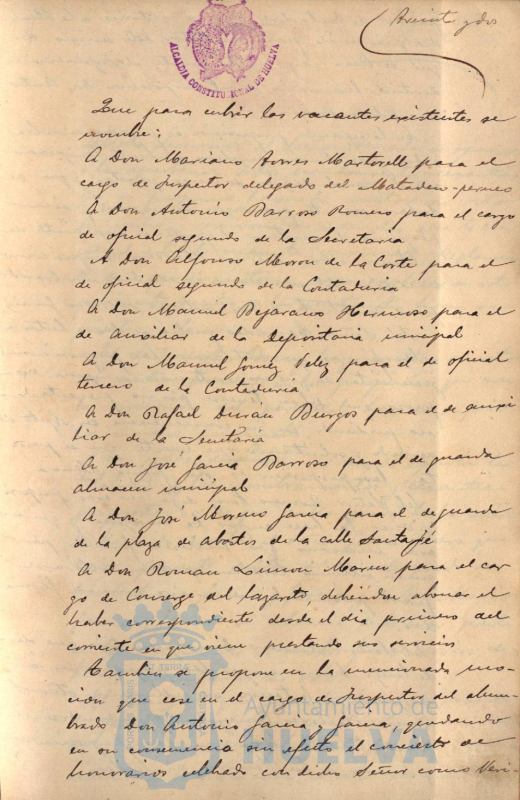 Treinta y dos
ALCALDIA CONSTITUCIONAL DE HUELVA
Que para cubrir las vacantes existentes se
nombre:
A Don Mariano Torres Martorell para el
cargo de Inspector delegado del Matadero-perneo
A Don Antonio Barroso Romero para el cargo
de oficial segundo de la Secretaria
A Don Alfonso Moron de la Corte para el
de oficial segundo de la Contaduria
A Don Manuel Bejarano Hermoso para el
de auxiliar de la Depositaria municipal
A Don Manuel Gomez Velez para el de oficial
tercero de la Contaduria
A Don Rafael Durán Burgos para el de auxi-
liar de la Secretaria
A Don José Garcia Barroso para el de guarda
almacen municipal
A Don José Moreno Garcia para el de guarda
de la plaza de abastos de la calle Santa fé
A Don Roman Limon Marin para el car-
go de Conserge del lazareto, debiendose abonar el
haber correspondiente desde el dia primero del
corriente en que viene prestando sus servicios
Tambien se propone en la mencionada mo-
cion que cese en el cargo de Inspector del alum-
brado Don Antonio Garcia y Garcia, quedando
en su consecuencia sin efecto el concierto de
honorarios celebrado con dicho Señor como Veri-
Ayuntamiento de
HUELVA